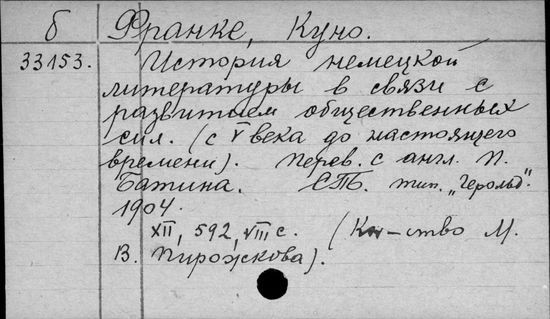 б Франке, Куно.
33153. История немецкой
литературы в связи с
развитием общественных
сил. (с V века до настоящего
времени). Перев. с англ. П.
Батина. СПБ. тип. „Герольд“.
1904.
XII, 592, VIII с. (Кн-ство М.
В. Пирожкова).